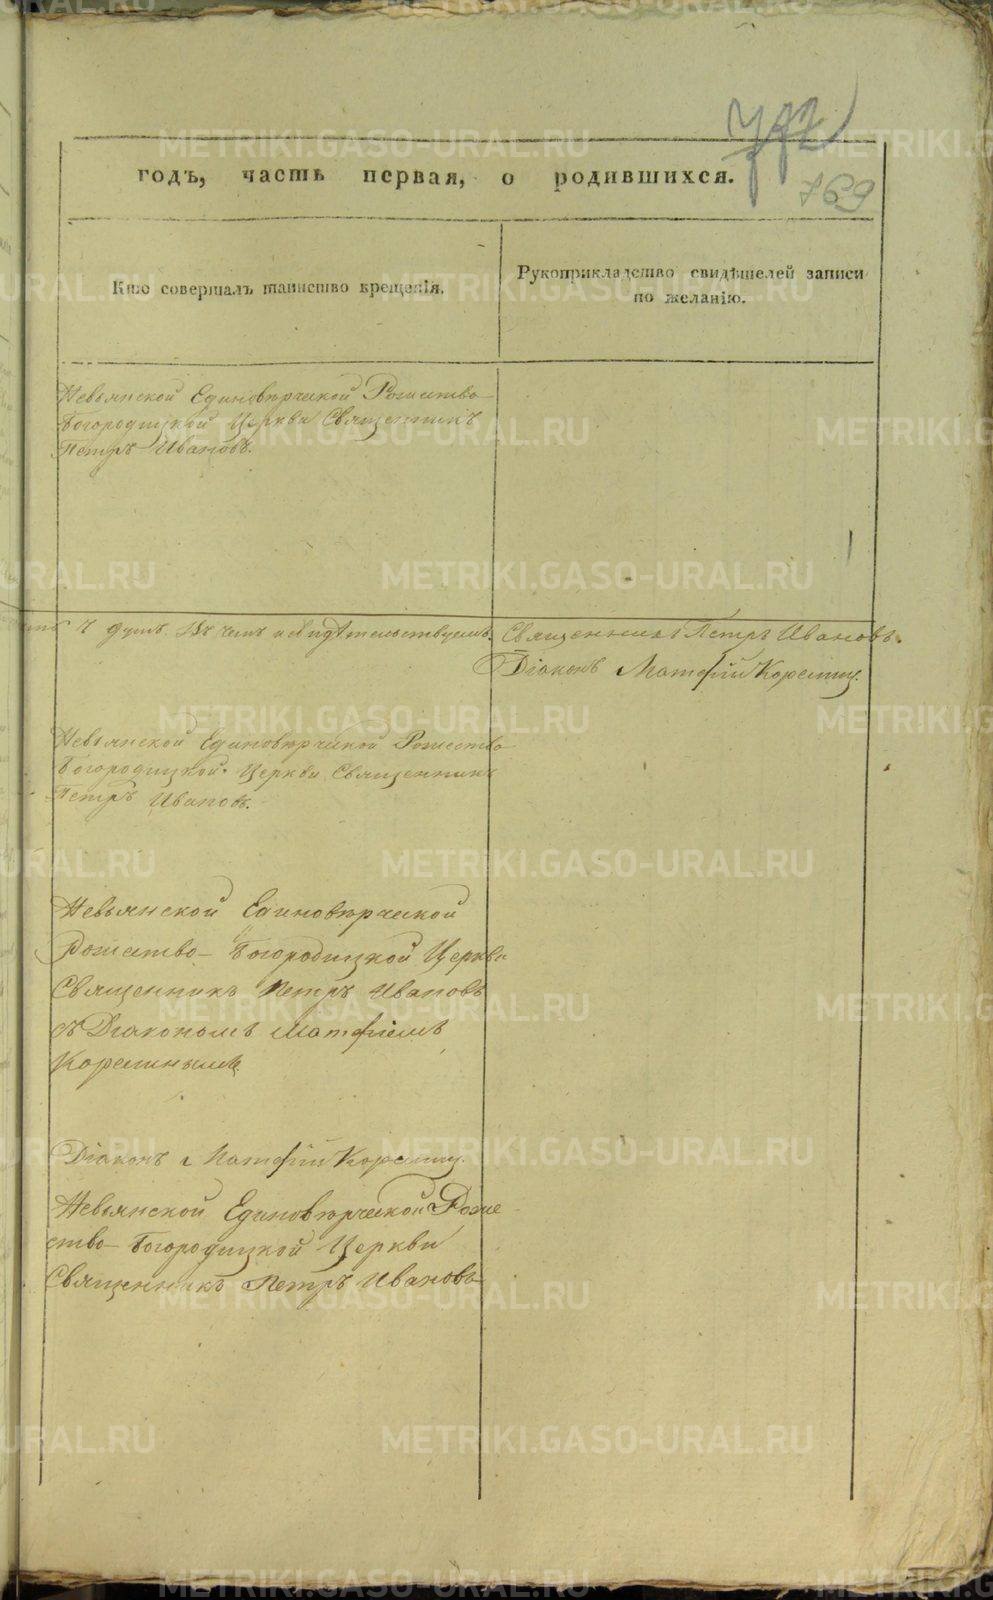 772
769
годъ, часть первая, о родившихся.
Кто совершалъ таинство крещенія.
Рукоприкладство свидѣтелей записи
по желанію.
Невьянской Единовѣрческой Рожество
Богородицкой Церкви Священникъ
Петръ Ивановъ.
Ч душъ. Въ чемъ и свидѣтельствуемъ. Священникъ Петръ Ивановъ.
Діаконъ Матфій Корелинъ.
Невьянской Единовѣрческой Рожество
Богородицкой Церкви Священникъ
Петръ Ивановъ.
Невьянской Единовѣрческой
Рожество-Богородицкой Церкви
Священникъ Петръ Ивановъ
съ Діакономъ Матфіемъ
Корелинымъ
Діаконъ Матфій Корелинъ.
Невьянской Единовѣрческой Роже
ство-Богородицкой Церкви
Священникъ Петръ Ивановъ
METRIKI.GASO-URAL.RU